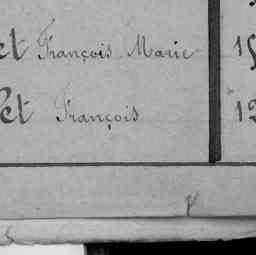 et François Marie 15
et François 12